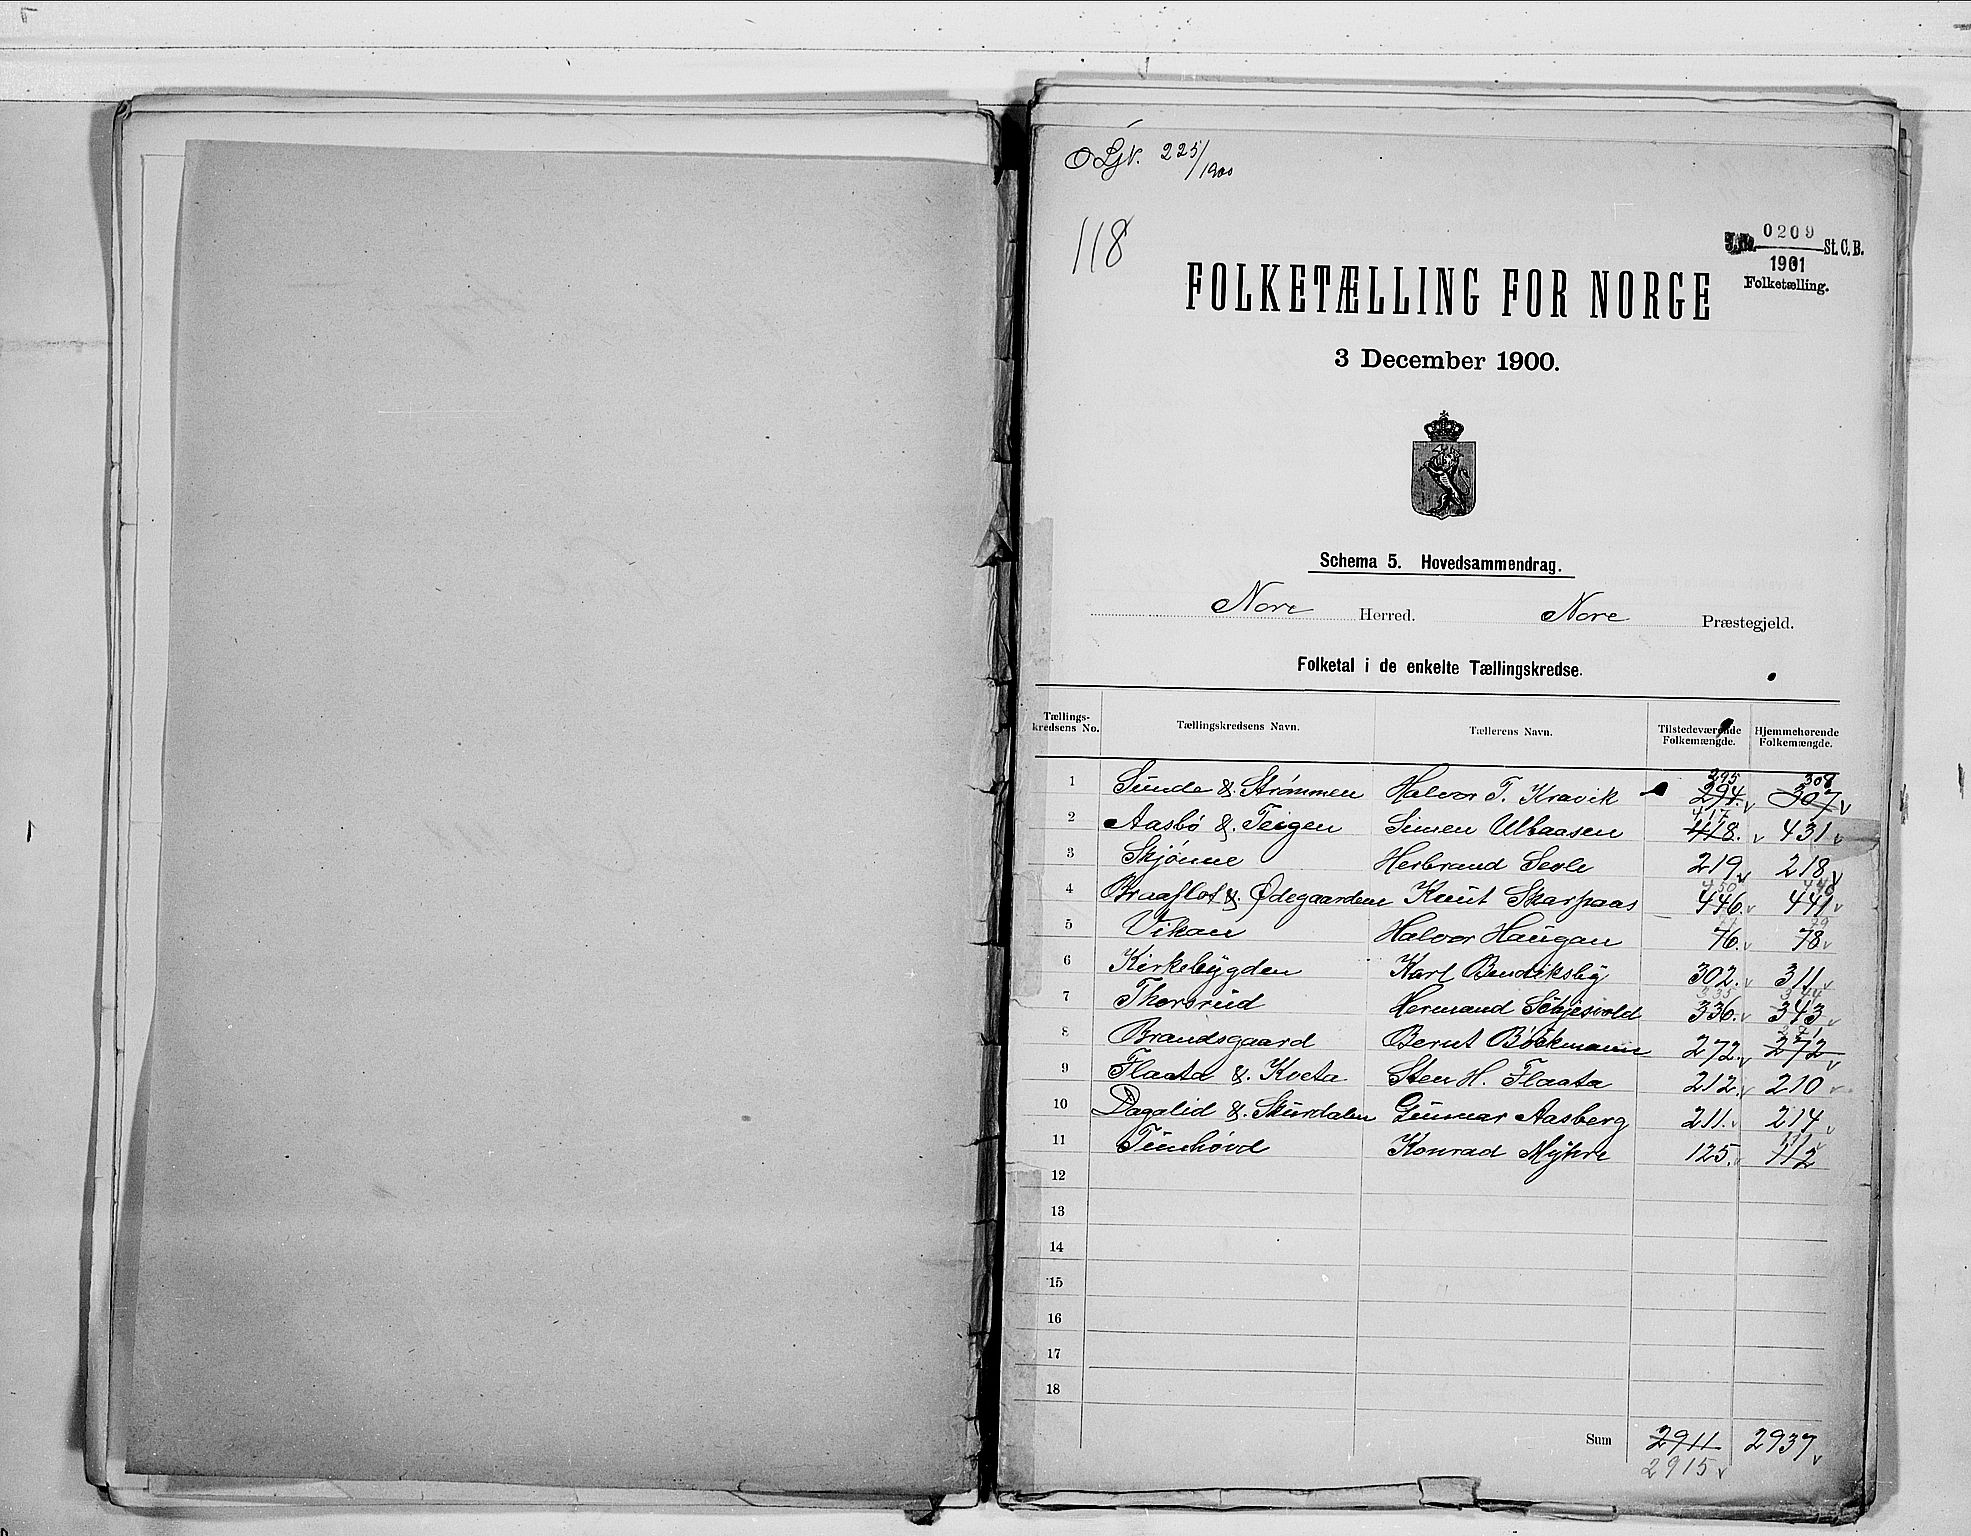 O Ljv. 225/1900
118
J.No. 0209 St.C.B.
1901
Folketælling.
FOLKETÆLLING FOR NORGE
3 December 1900.
Schema 5. Hovedsammendrag.
Nore Herred. Nore Præstegjeld.
Folketal i de enkelte Tællingskredse.
Tællings-kredsens No. Tællingskredsens Navn. Tællerens Navn. Tilstedeværende Folkemængde. Hjemmehørende Folkemængde.
295 308
1 Sunde &. Strømmen Halvor T. Kravik 294. 307
417
2 Aasbö &. Teigen Simen Ulbaasen 418. 431
3 Skjönne Herbrand Sevle 219 218
450 440
4 Braaflot &. Ødegaarden Knut Skarpaas 446. 441
5 Vikan Halvor Haugan 76. 78
6 Kirkebygden Karl Bendiksby 302. 311
335 344
7 Thorsrud Hermand Schjesvold 336. 343
271
8 Brandsgaard Bernt Böckmann 272. 272
9 Flaata &. Kveta Sten H. Flaata 212. 210
10 Dagalid &. Skurdalen Gunnar Aasberg 211. 214
111
11 Tunhövd Konrad Myhre 125. 112
12
13
14
15
16
17
18
Sum 2911 2937
2915